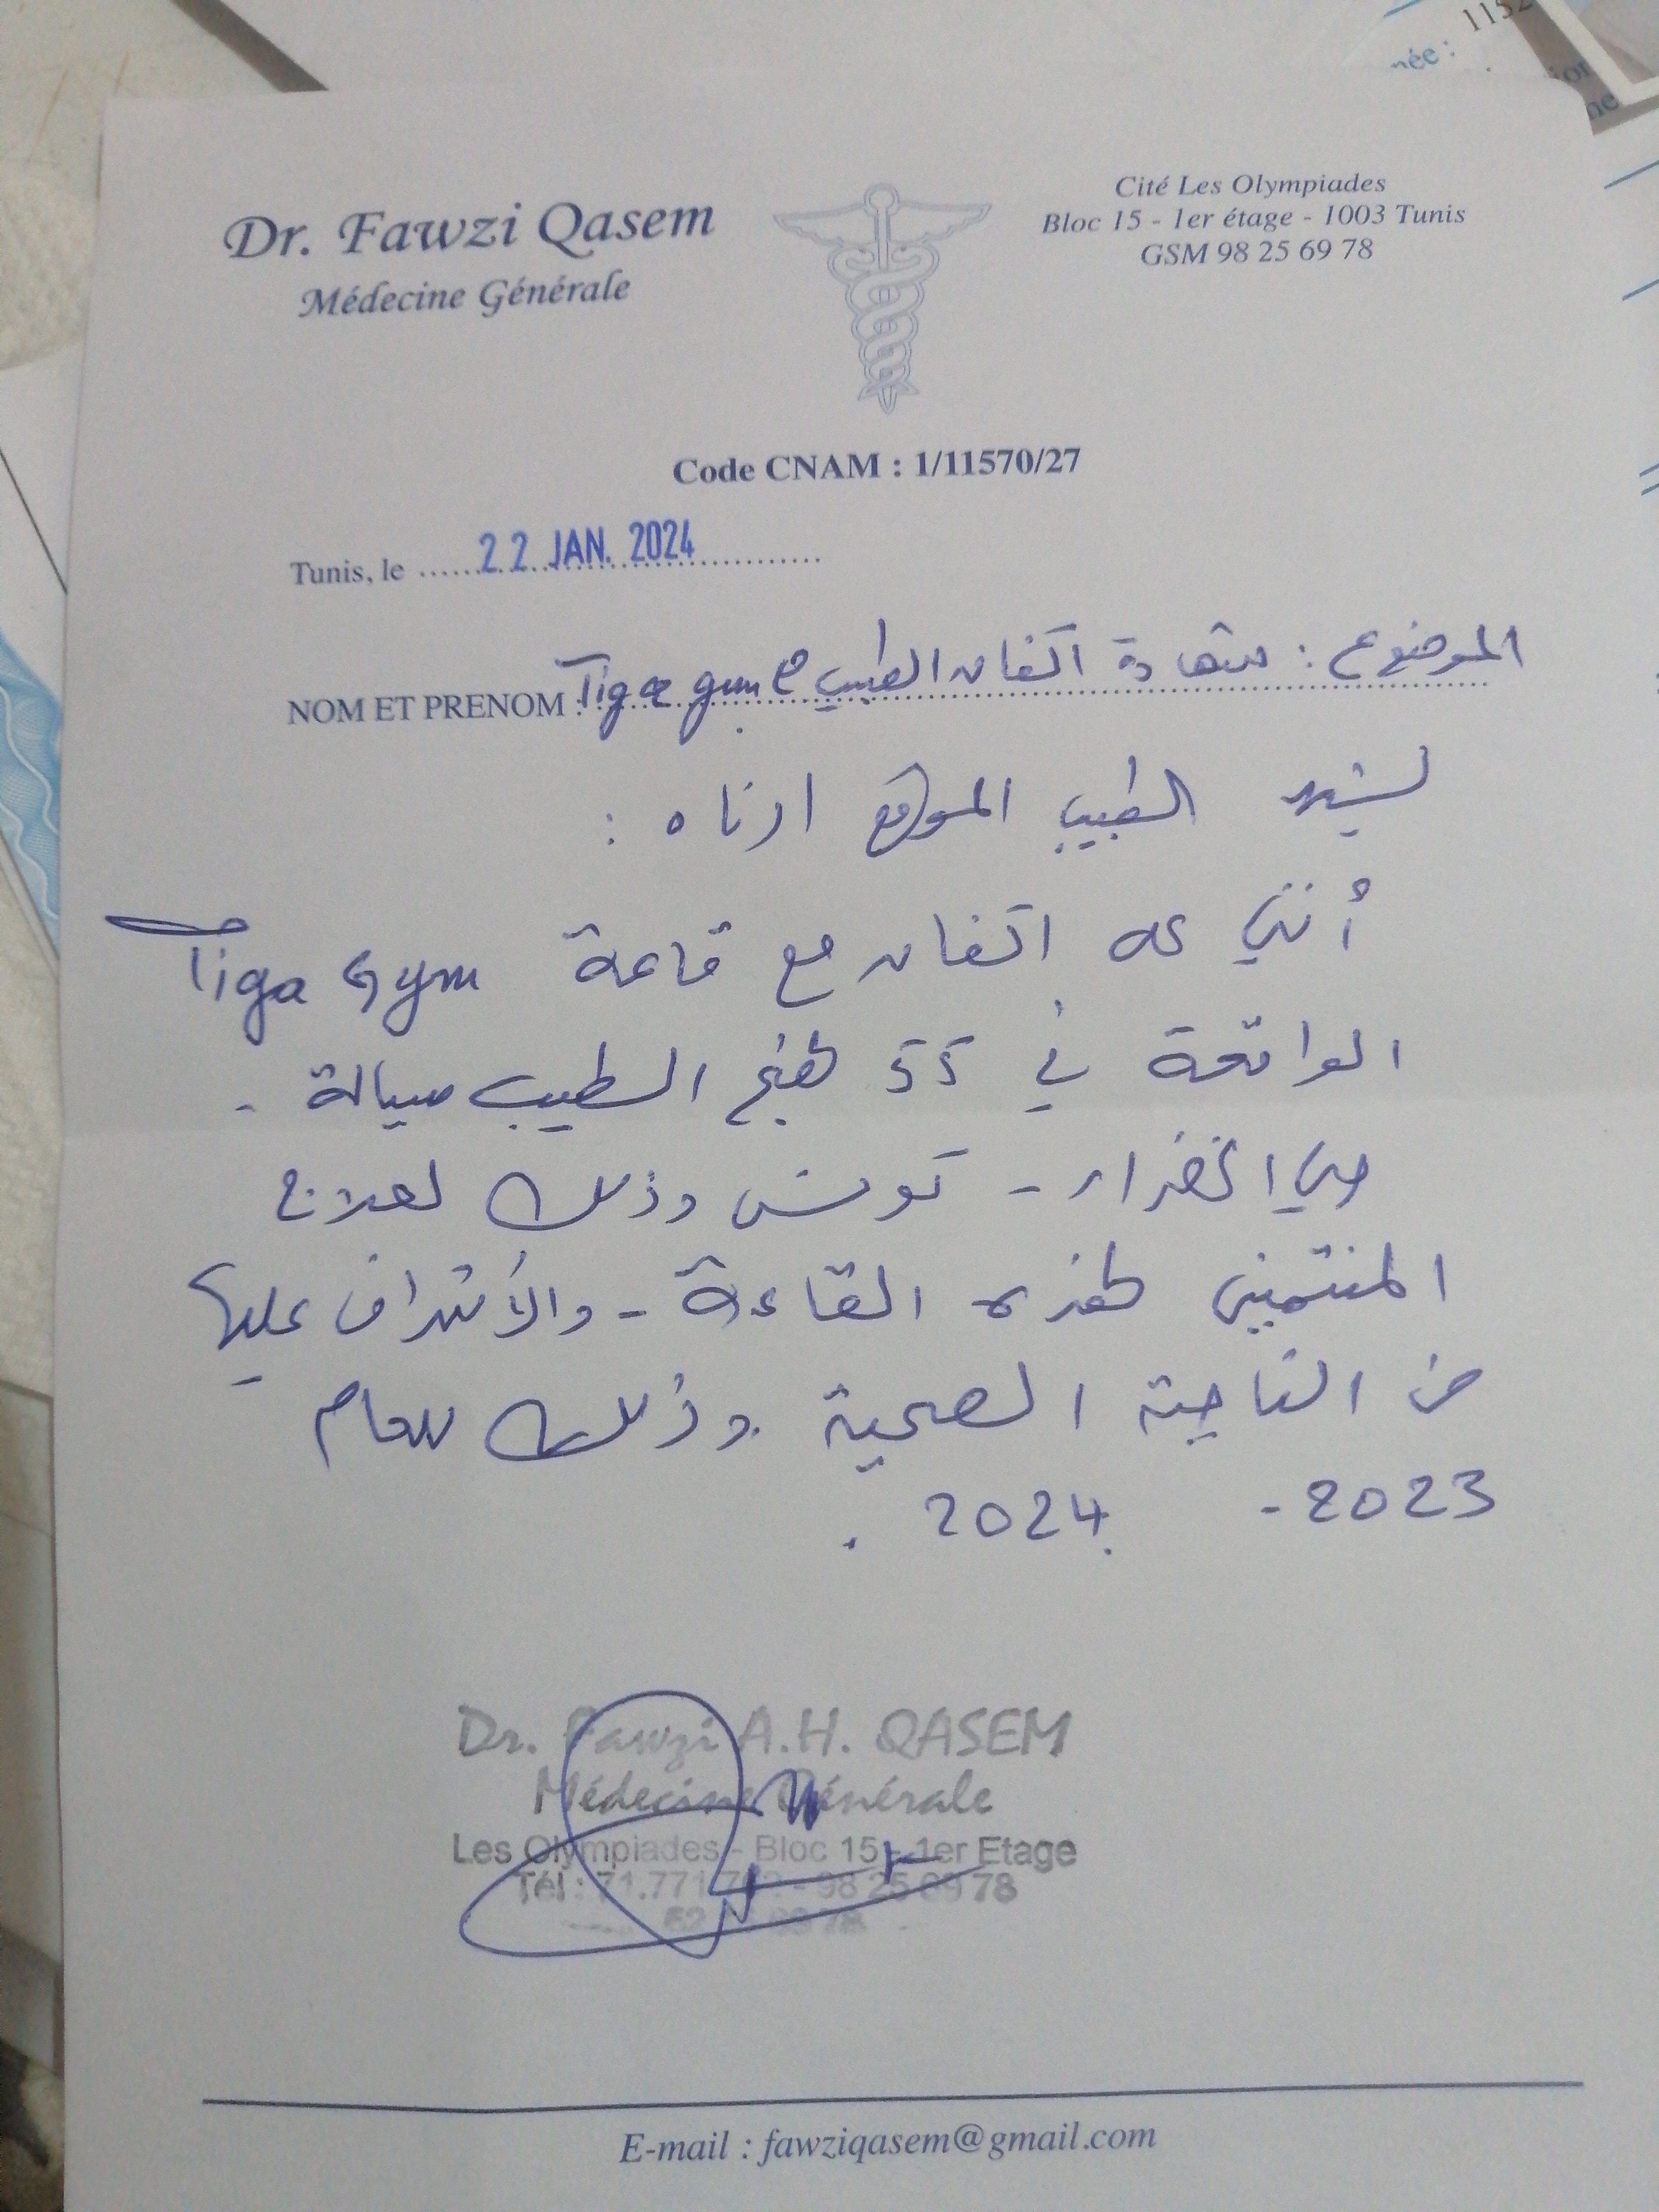 née : 1152
Dr. Fawzi Qasem
Médecine Générale
Cité Les Olympiades
Bloc 15 - 1er étage - 1003 Tunis
GSM 98 25 69 78
Code CNAM : 1/11570/27
Tunis, le 22 JAN. 2024
الموضوع : شهادة اتفاق الطبيب مع
NOM ET PRENOM : Tiga gym
يشهد الطبيب الموقع ادناه :
أنني على اتفاق مع قاعة Tiga Gym
الواقعة في 55 نهج الطيب سيالة -
حي الخضراء - تونس وذلك لعلاج
المنتمين لهذه القاعة - والأشراف عليها
من الناحية الصحية وذلك للعام
2023 - 2024 .
Dr. Fawzi A.H. QASEM
Médecine Générale
Les Olympiades - Bloc 15 - 1er Etage
Tél : 71.771 - 98 25 69 78
E-mail : fawziqasem@gmail.com